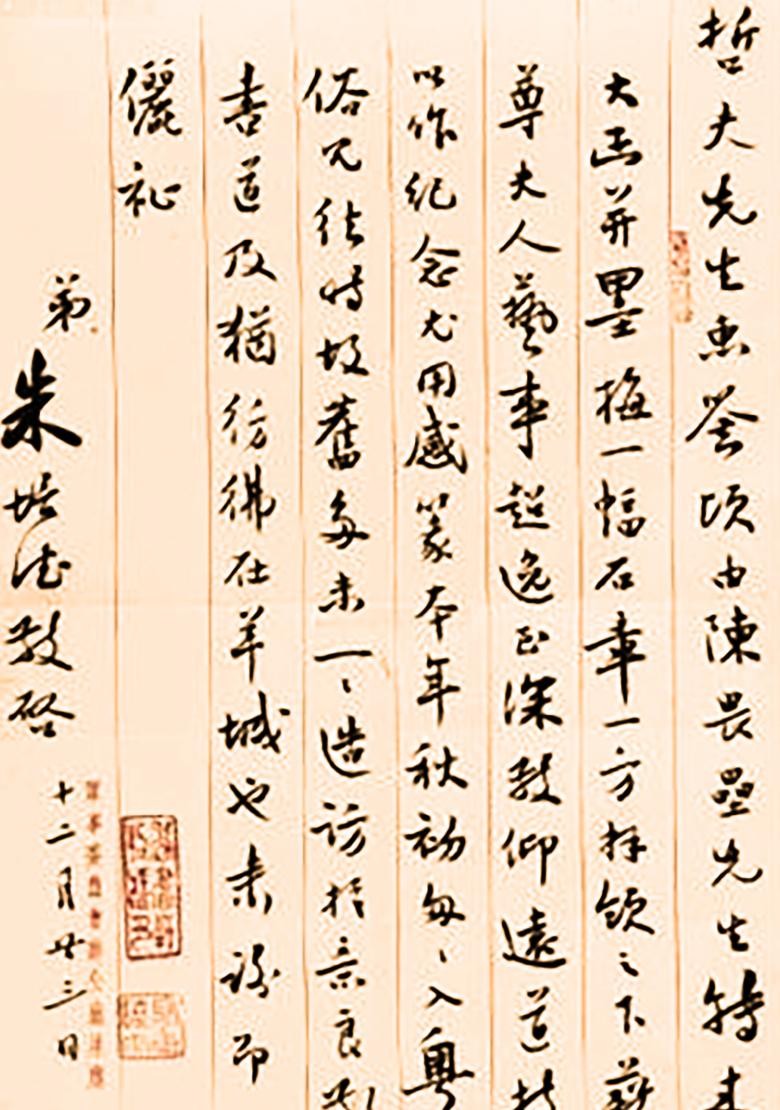 哲夫先生惠詧頃由陳畏壘先生轉来
大函并墨梅一幅石章一方拜領之下
尊夫人藝事超逸至深敬仰遠道
以作紀念尤用感篆本年秋初匆匆入粤
俗冗時故舊多未一ミ造訪抱歉良
書道及猶彷彿在羊城也耑謝即
儷祉
弟朱培德敬啓
十二月廿三日